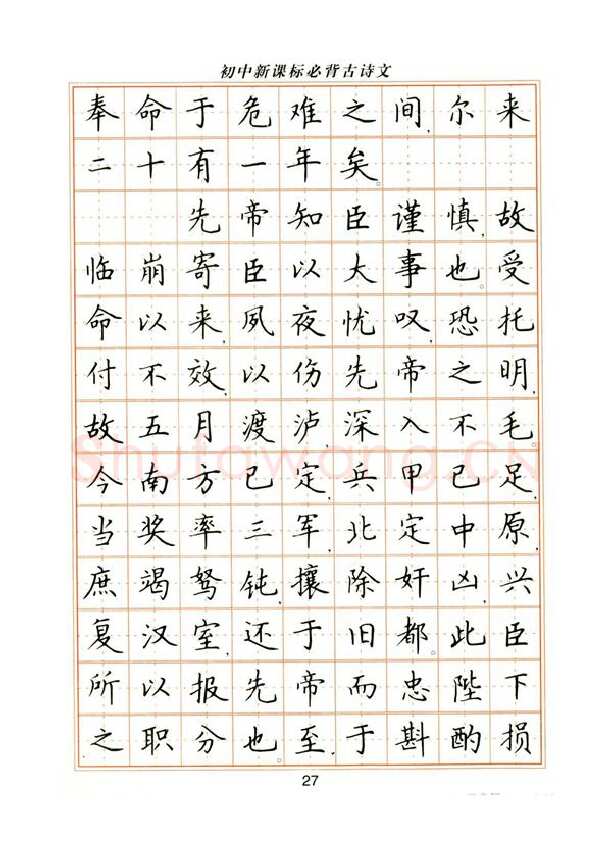 初中新课标必背古诗文
奉命于危难之间,尔来
二十有一年矣。
先帝知臣谨慎,故
临崩寄臣以大事也。受
命以来,夙夜忧叹,恐托
付不效,以伤先帝之明,
故五月渡泸,深入不毛。
今南方已定,兵甲已足,
当奖率三军,北定中原,
庶竭驽钝,攘除奸凶,兴
复汉室,还于旧都。此臣
所以报先帝而忠陛下
之职分也。至于斟酌损
Shufawang.CN
27